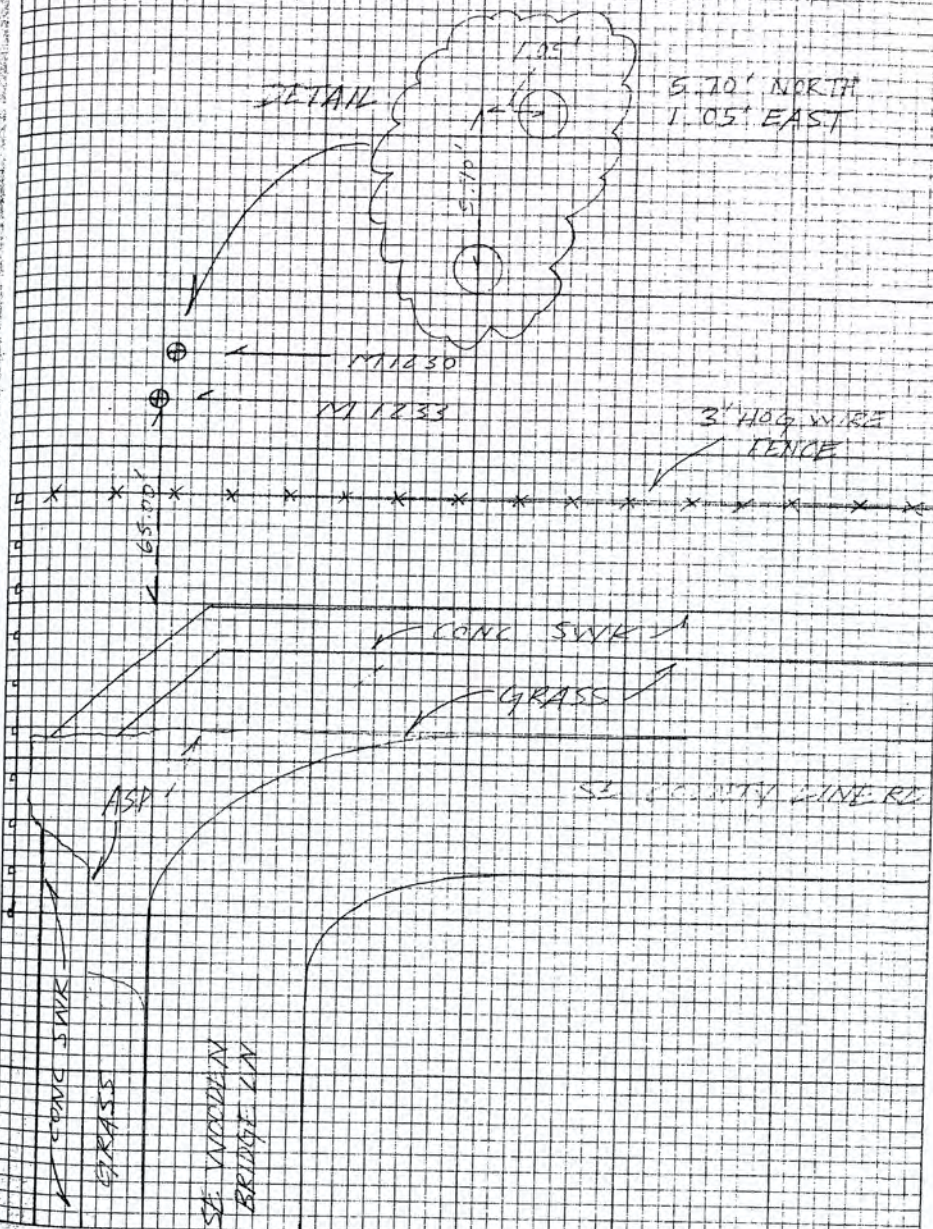 DETAIL
1.05'
5.70' NORTH
1.05' EAST
5.70'
M1230
M1233
3' HOG WIRE
FENCE
65.00'
CONC SWK
GRASS
ASP
SE COUNTY LINE RD
CONC SWK
GRASS
SE WOODEN
BRIDGE LN